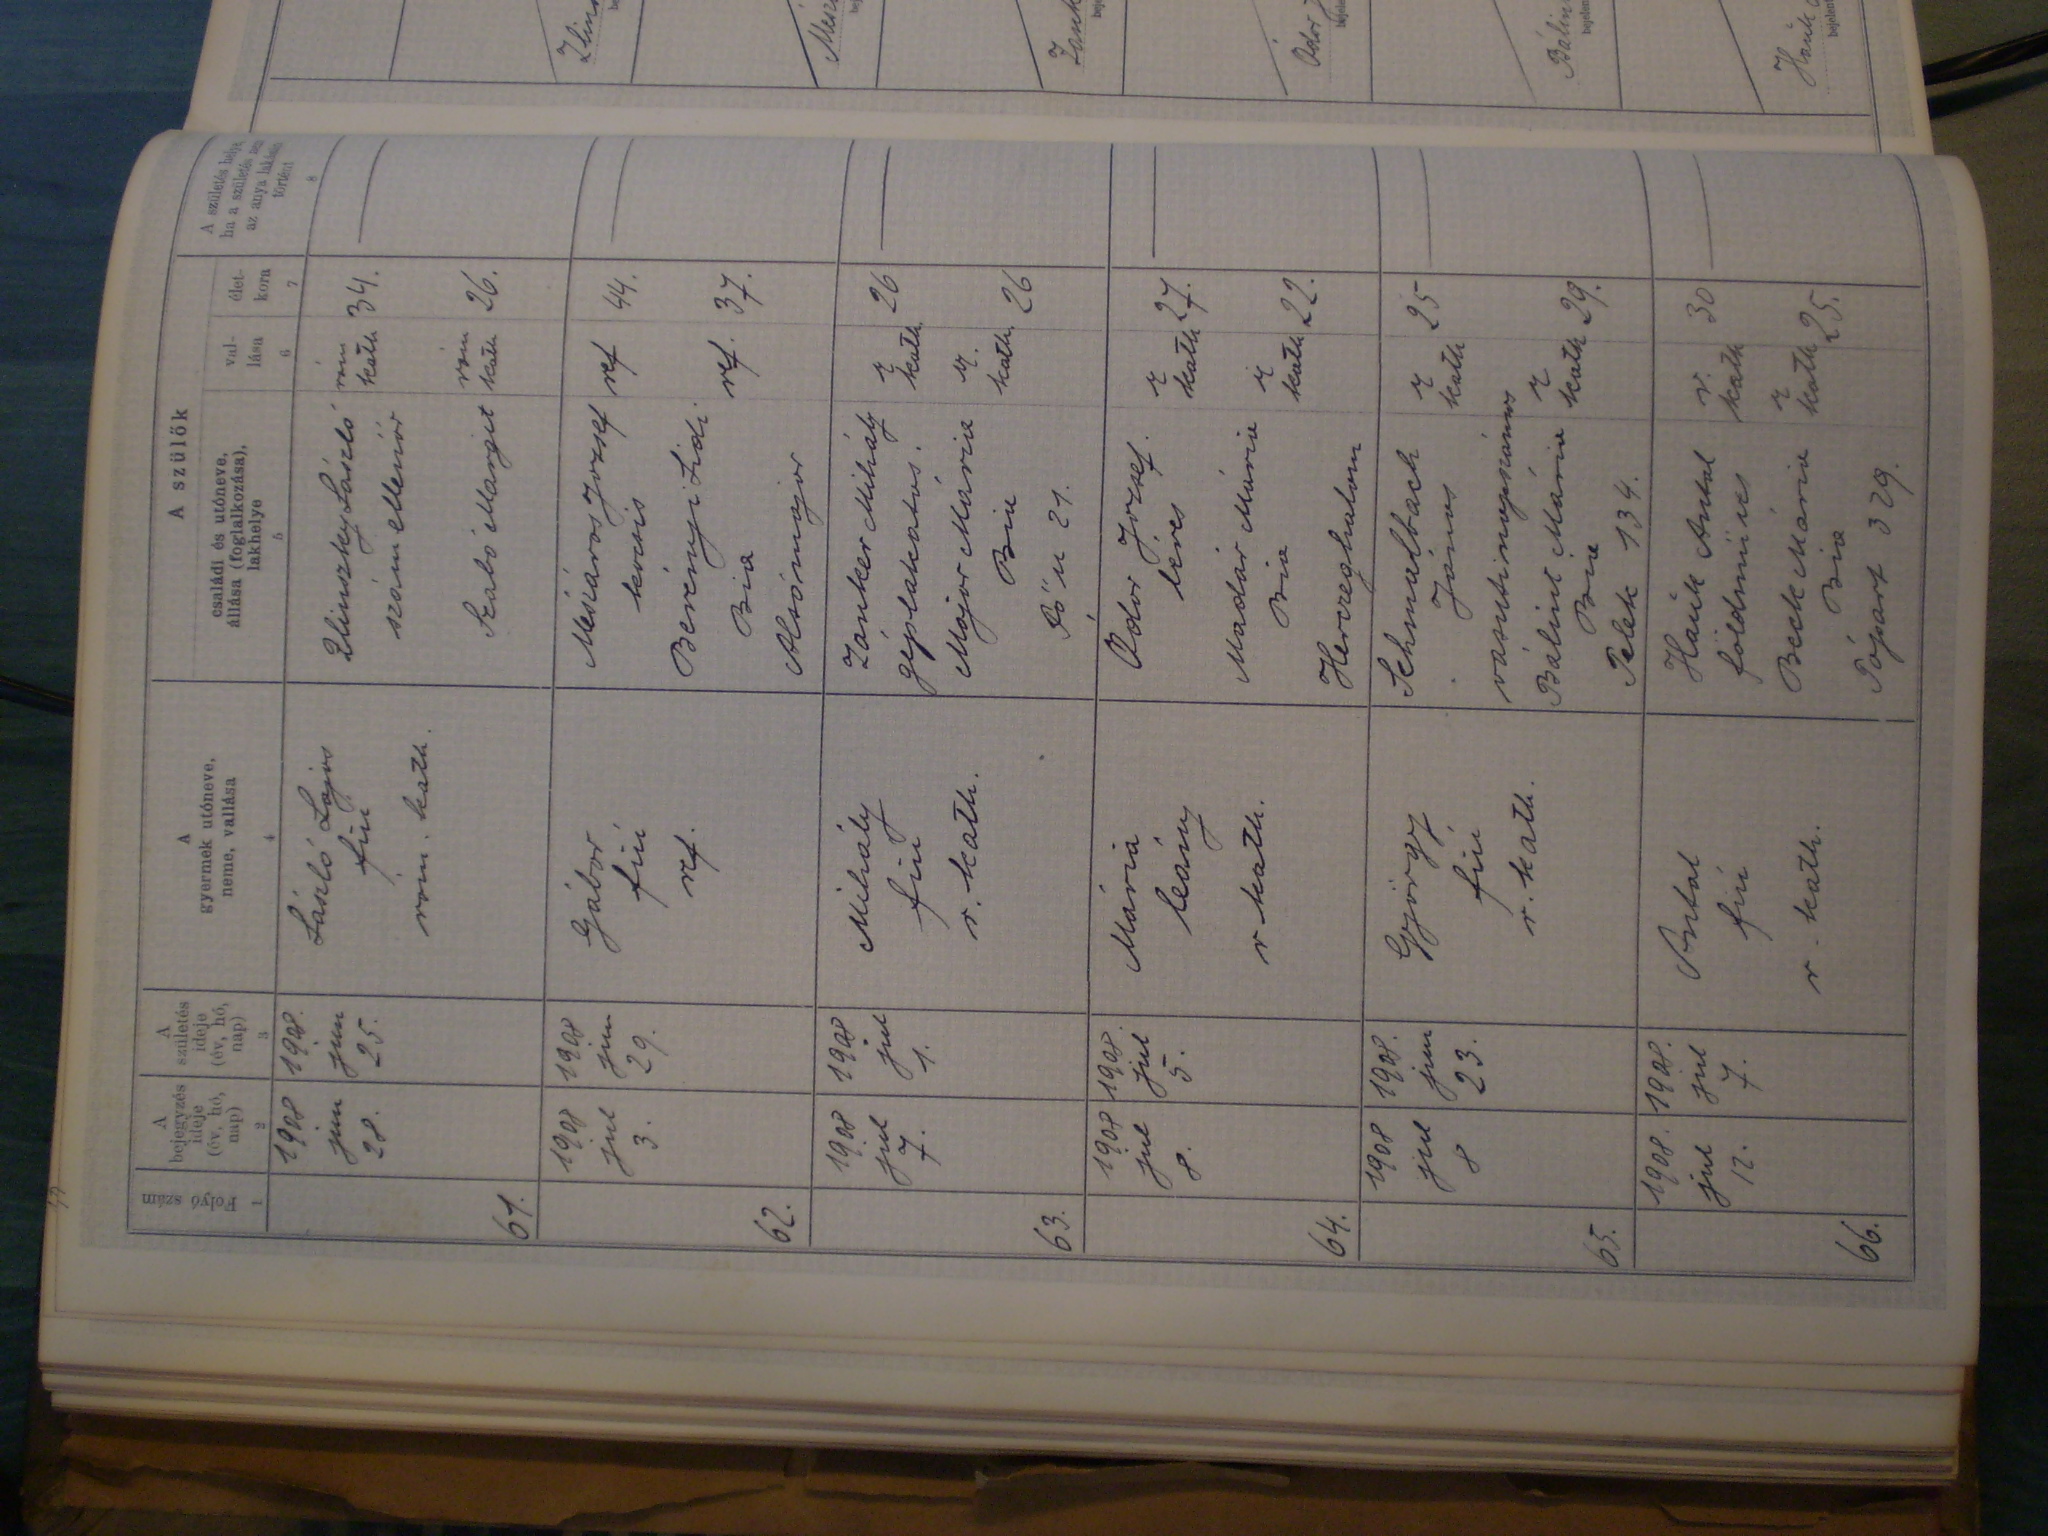 A szülők
Folyó szám
A bejegyzés ideje (év, hó, nap)
A születés ideje (év, hó, nap)
A gyermek utóneve, neme, vallása
családi és utóneve, állása (foglalkozása), lakhelye
val-lása
élet-kora
A születés helye, ha a születés nem az anya lakásán történt
1 2 3 4 5 6 7 8
61.
1908 jun 28.
1908. jun 25.
László Lajos
fiu
róm. kath.
Zlinszky László
szám ellenőr
róm kath 34.
Szabó Margit
róm kath 26.
62.
1908 jul 3.
1908 jun 29.
Gábor
fiú
ref.
Mészáros József
kocsis
ref 44.
Berényi Lidi
ref. 37.
Bia
Alsómajor
63.
1908 jul 7.
1908 jul 1.
Mihály
fiu
r. kath.
Zánker Mihály
géplakatos.
r kath. 26
Major Mária
r. kath. 26
Bia
Fő u 21.
64.
1908 jul 8.
1908. jul 5.
Mária
leány
r kath.
Odor József.
béres
r kath 27.
Madár Mária
r kath 22.
Bia
Herczeghalom
65.
1908 jul 8
1908. jun 23.
György
fiu
r. kath.
Schmaltbach
János
r kath 25
Bálint Mária
r kath 29.
Bia
Telek 134.
66.
1908. jul 12.
1908. jul 7.
Antal
fiú
r. kath.
Hauk Antal
földmüves
r. kath 30
Beck Mária
r kath 25.
Bia
Tópart 329.